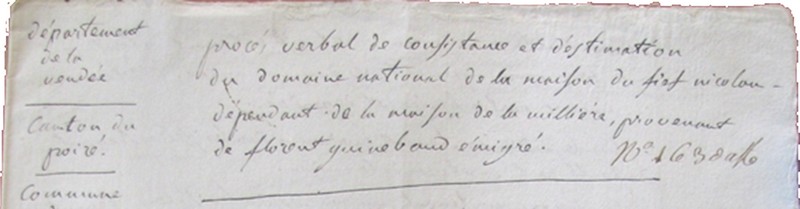 département
de la
vendée
Canton du
poiré.
Commune
procés verbal de consistance et déstimation
du domaine national de la maison du fief nicolau-
dépendant de la maison de la milliére, provenant
de florent guinebaud émigré.
No. 163